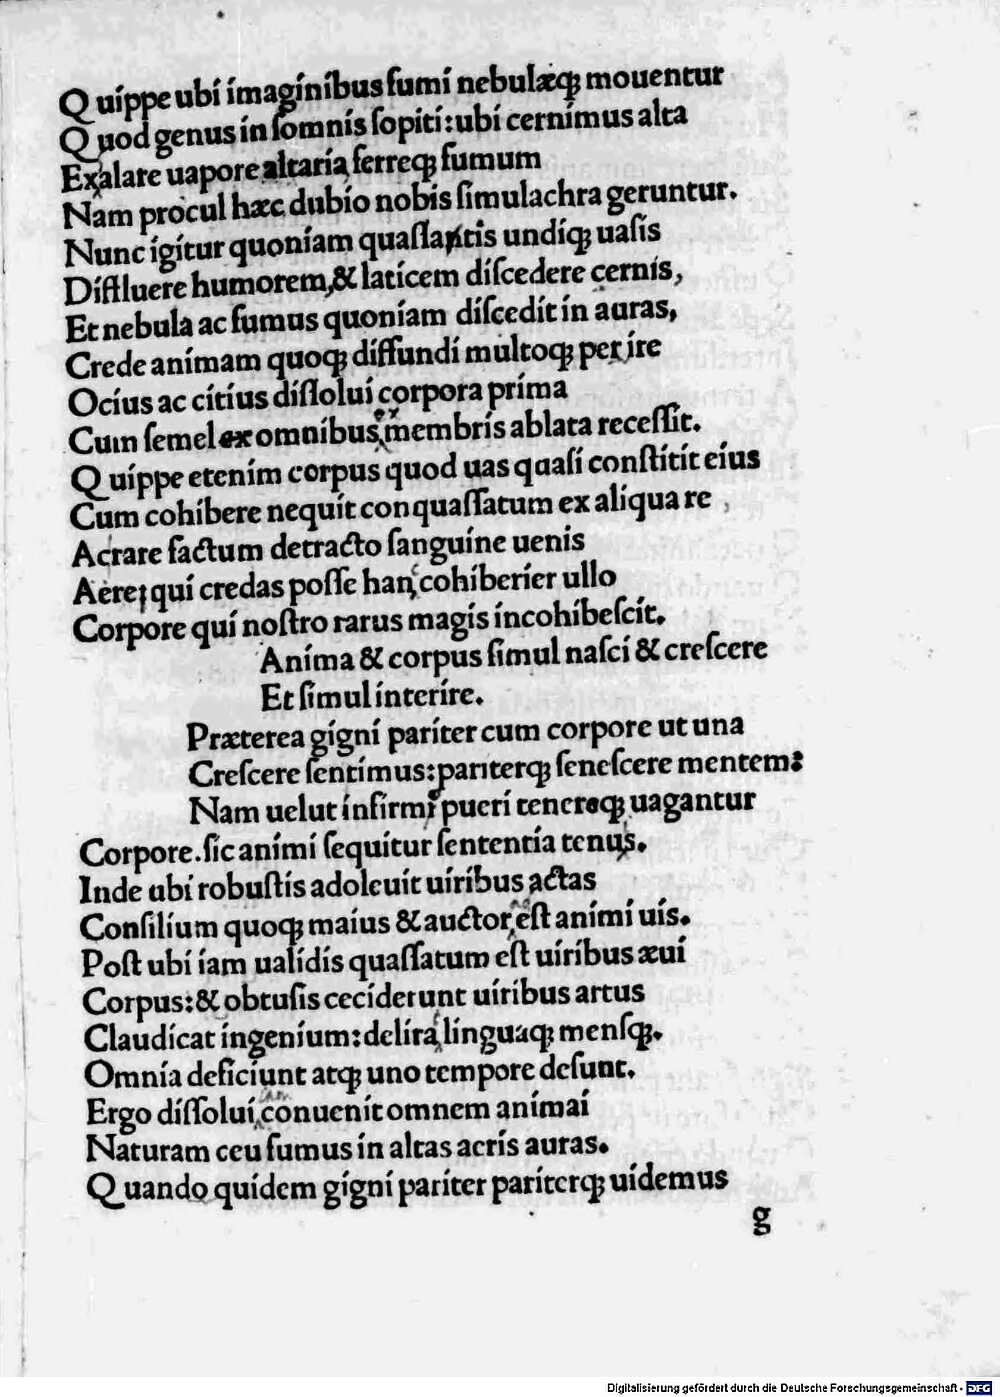 Quippe ubi imaginibus fumi nebulæqꝫ mouentur
Quod genus in ſomnis ſopiti: ubi cernimus alta
Exalare uapore altaria, ferreqꝫ fumum
Nam procul hæc dubio nobis ſimulachra geruntur.
Nunc igitur quoniam quaſſantis undiqꝫ uaſis
Diffluere humorem, & laticem diſcedere cernis,
Et nebula ac fumus quoniam diſcedit in auras,
Crede animam quoqꝫ diffundi multoqꝫ perire
Ocius ac citius diſſolui corpora prima
Cum ſemel ex omnibus membris ablata receſſit.
Quippe etenim corpus quod uas quaſi conſtitit eius
Cum cohibere nequit conquaſſatum ex aliqua re
Acrare factum detracto ſanguine uenis
Aere; qui credas poſſe hanc cohiberier ullo
Corpore qui noſtro rarus magis incohibeſcit.
Anima & corpus ſimul naſci & creſcere
Et ſimul interire.
Præterea gigni pariter cum corpore ut una
Creſcere ſentimus: pariterqꝫ ſeneſcere mentem:
Nam uelut infirmi pueri tenereqꝫ uagantur
Corpore. ſic animi ſequitur ſententia tenus.
Inde ubi robuſtis adoleuit uiribus actas
Conſilium quoqꝫ maius & auctor eſt animi uis.
Poſt ubi iam ualidis quaſſatum eſt uiribus æui
Corpus: & obtuſis ceciderunt uiribus artus
Claudicat ingenium: delira linguaqꝫ menſqꝫ.
Omnia deficiunt atqꝫ uno tempore deſunt.
Ergo diſſolui conuenit omnem animai
Naturam ceu fumus in altas acris auras.
Quando quidem gigni pariter pariterqꝫ uidemus
g
Digitalisierung gefördert durch die Deutsche Forschungsgemeinschaft - DFG